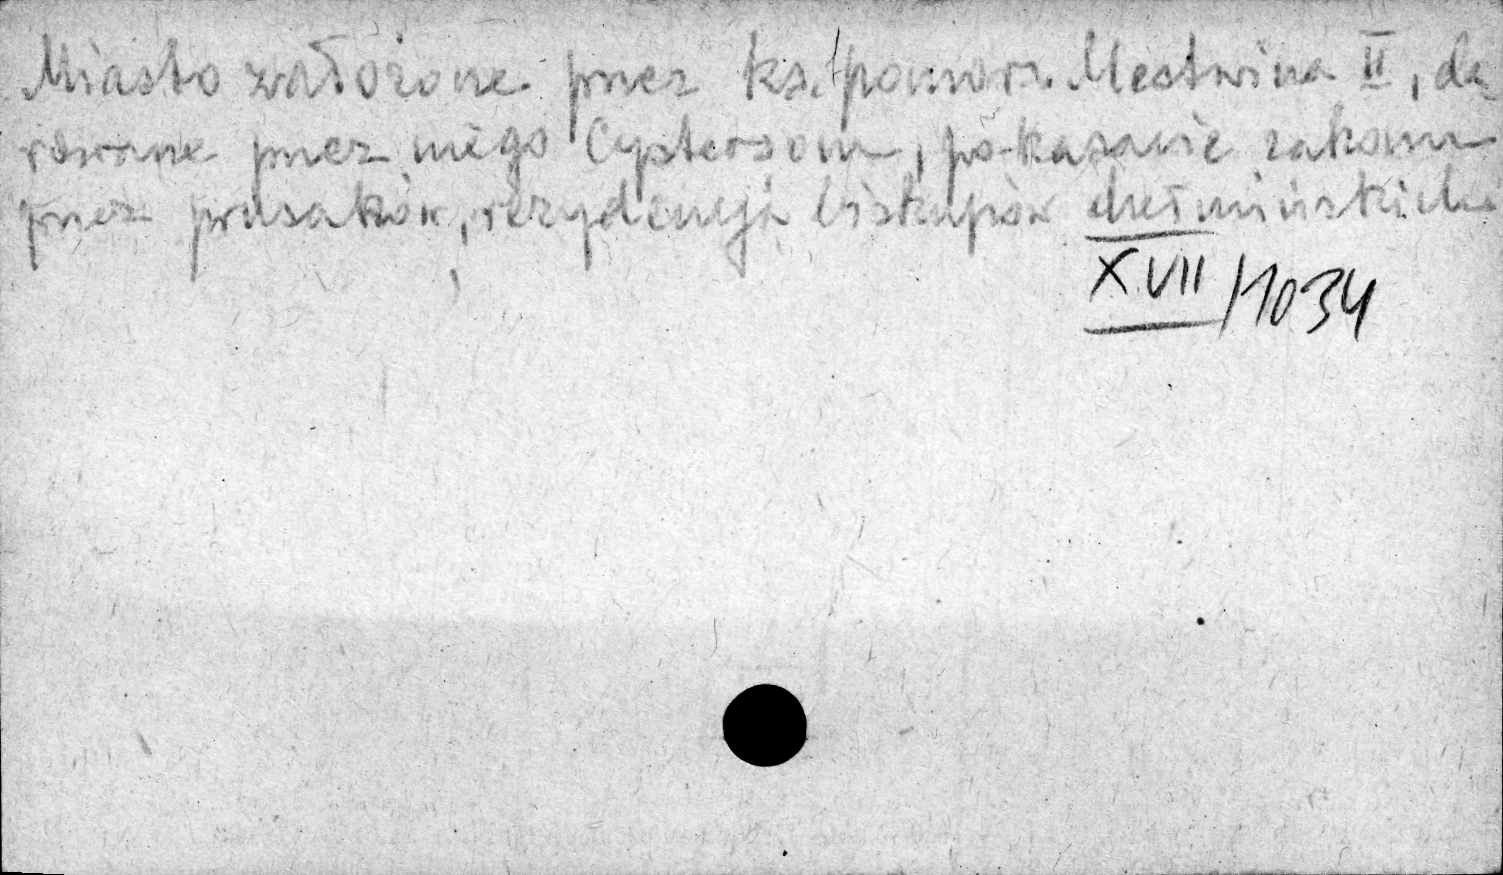 Miasto założone przez ks. pomors. Mestwina II, da
rowane przez niego Cystersom, po kasacie zakonu
przez prusaków, rezydencja biskupów chełmińskich
XVII/1034